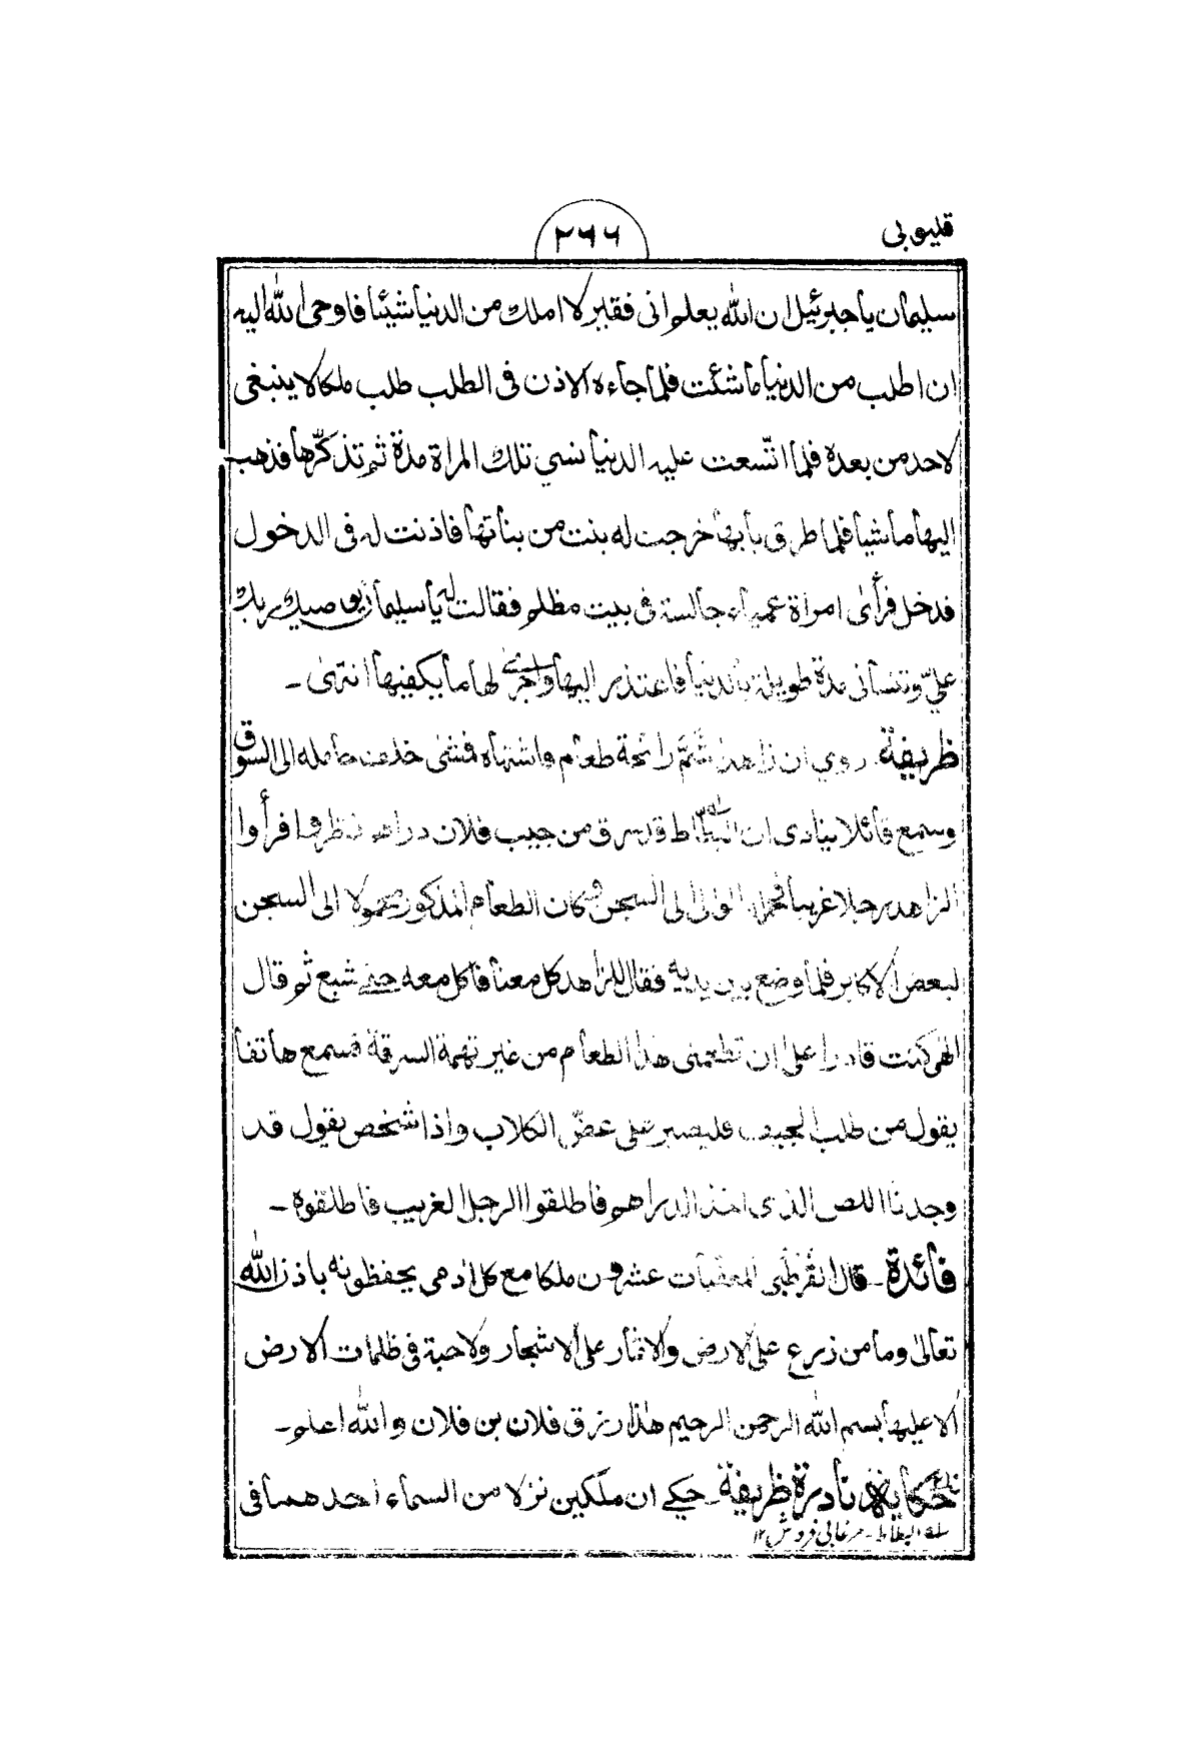 قليوبى
٢٦٦
سليمان ياجبرئيل ان الله يعلم انى فقير لا املك من الدنيا شيئا فاوحى الله اليه
ان اطلب من الدنيا ما شئت فلما جاءه الاذن فى الطلب طلب ملكا لا ينبغى
لاحد من بعده فلما اتّسعت عليه الدنيا نسي تلك المراة مدة ثم تذكّرها فذهب
اليها ماشيا فلما طرق بابها خرجت له بنت من بناتها فاذنت له فى الدخول
فدخل فرأى امراة عمياء جالسة فى بيت مظلم فقالت له ياسليمان يوصيك ربك
علىّ وتنسانى مدة طويلة بالدنيا فاعتذر اليها واجرى لها ما يكفيها انتهى ـ
ظريفة روي ان زاهدا شمّ رائحة طعام واشتهاه فمشى خلف حامله الى السوق
وسمع قائلا ينادى ان البطّاط قد سرق من جيب فلان دراهم فنظروا فرأوا
الزاهد رجلا غريبا فحمل الوالى الى السجن وكان الطعام المذكور محمولا الى السجن
لبعض الاكابر فلما وضع بين يديه فقال للزاهد كل معنا فاكل معه حتى شبع ثم قال
الهى كنت قادرا على ان تطعمنى هذا الطعام من غير تهمة السرقة فسمع هاتفا
يقول من طلب الجيف فليصبر على عضّ الكلاب واذا شخص يقول قد
وجدنا اللص الذى اخذ الدراهم فاطلقوا الرجل الغريب فاطلقوه ـ
فائدة ـ قال القرطبى المعقبات عشرون ملكا مع كل ادمى يحفظونه باذن الله
تعالى وما من زرع على الارض والاثمار على الاشجار ولا حبة فى ظلمات الارض
الا عليها بسم الله الرحمن الرحيم هذا رزق فلان بن فلان والله اعلم ـ
حكاية نادرة ظريفة ـ حكے ان ملكين نزلا من السماء احدهما فى
سله البطاط ـ مرغابى فروش ١٢